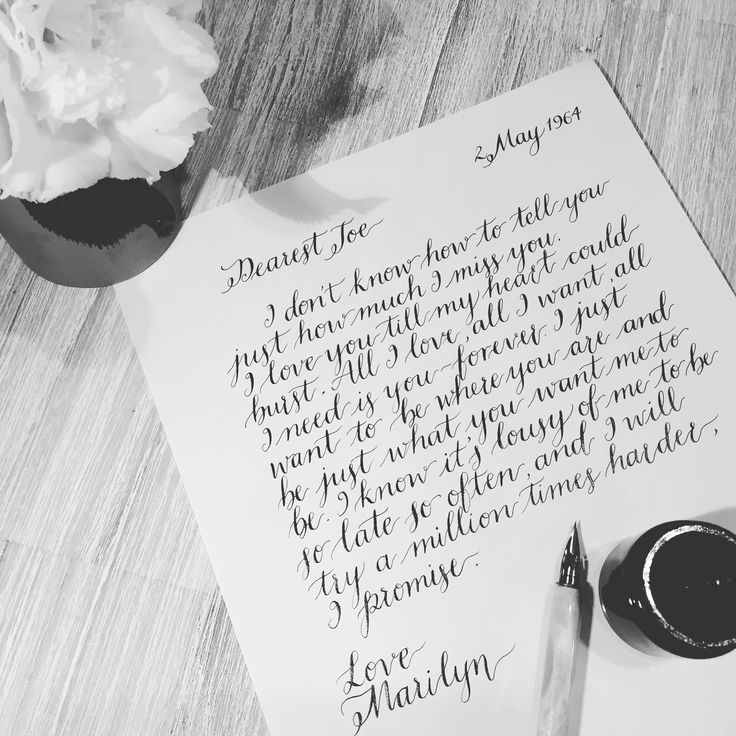 2 May 1964
Dearest Joe
I don't know how to tell you
just how much I miss you.
I love you till my heart could
burst. All I love, all I want, all
I need is you - forever. I just
want to be where you are and
be just what you want me to
be. I know it's lousy of me to be
so late so often, and I will
try a million times harder,
I promise.
Love
Marilyn